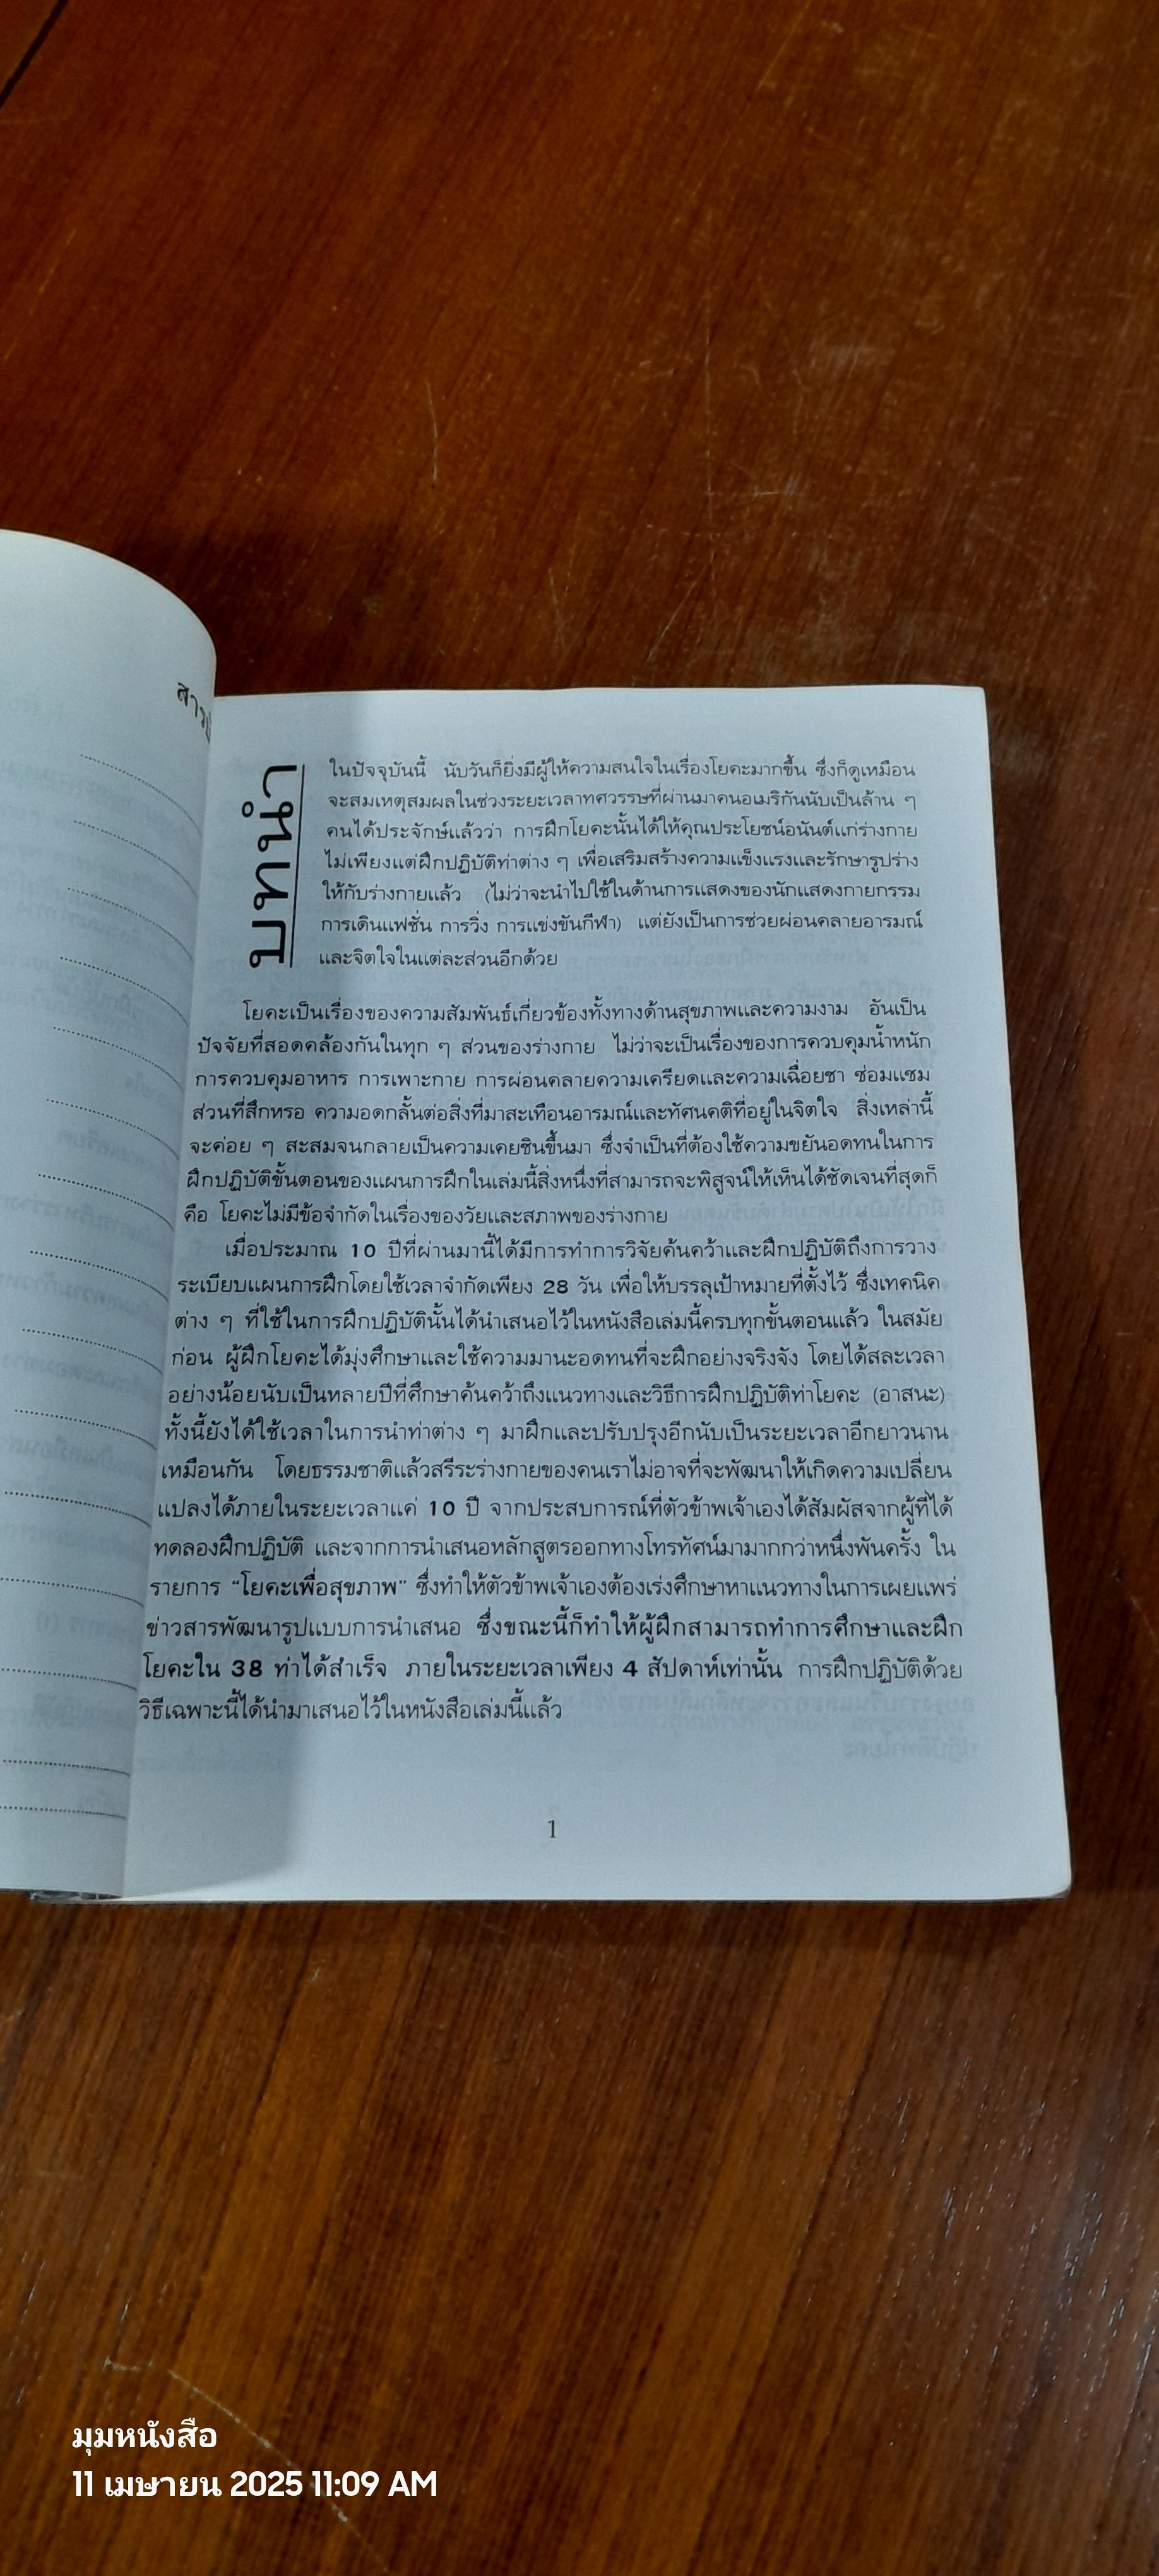 สาร
บทนำ
ในปัจจุบันนี้ นับวันก็ยิ่งมีผู้ให้ความสนใจในเรื่องโยคะมากขึ้น ซึ่งก็ดูเหมือน
จะสมเหตุสมผลในช่วงระยะเวลาทศวรรษที่ผ่านมาคนอเมริกันนับเป็นล้าน ๆ
คนได้ประจักษ์แล้วว่า การฝึกโยคะนั้นได้ให้คุณประโยชน์อนันต์แก่ร่างกาย
ไม่เพียงแต่ฝึกปฏิบัติท่าต่าง ๆ เพื่อเสริมสร้างความแข็งแรงและรักษารูปร่าง
ให้กับร่างกายแล้ว (ไม่ว่าจะนำไปใช้ในด้านการแสดงของนักแสดงกายกรรม
การเดินแฟชั่น การวิ่ง การแข่งขันกีฬา) แต่ยังเป็นการช่วยผ่อนคลายอารมณ์
และจิตใจในแต่ละส่วนอีกด้วย
โยคะเป็นเรื่องของความสัมพันธ์เกี่ยวข้องทั้งทางด้านสุขภาพและความงาม อันเป็น
ปัจจัยที่สอดคล้องกันในทุก ๆ ส่วนของร่างกาย ไม่ว่าจะเป็นเรื่องของการควบคุมน้ำหนัก
การควบคุมอาหาร การเพาะกาย การผ่อนคลายความเครียดและความเฉื่อยชา ซ่อมแซม
ส่วนที่สึกหรอ ความอดกลั้นต่อสิ่งที่มาสะเทือนอารมณ์และทัศนคติที่อยู่ในจิตใจ สิ่งเหล่านี้
จะค่อย ๆ สะสมจนกลายเป็นความเคยชินขึ้นมา ซึ่งจำเป็นที่ต้องใช้ความขยันอดทนในการ
ฝึกปฏิบัติขั้นตอนของแผนการฝึกในเล่มนี้สิ่งหนึ่งที่สามารถจะพิสูจน์ให้เห็นได้ชัดเจนที่สุดก็
คือ โยคะไม่มีข้อจำกัดในเรื่องของวัยและสภาพของร่างกาย
เมื่อประมาณ 10 ปีที่ผ่านมานี้ได้มีการทำการวิจัยค้นคว้าและฝึกปฏิบัติถึงการวาง
ระเบียบแผนการฝึกโดยใช้เวลาจำกัดเพียง 28 วัน เพื่อให้บรรลุเป้าหมายที่ตั้งไว้ ซึ่งเทคนิค
ต่าง ๆ ที่ใช้ในการฝึกปฏิบัตินั้นได้นำเสนอไว้ในหนังสือเล่มนี้ครบทุกขั้นตอนแล้ว ในสมัย
ก่อน ผู้ฝึกโยคะได้มุ่งศึกษาและใช้ความมานะอดทนที่จะฝึกอย่างจริงจัง โดยได้สละเวลา
อย่างน้อยนับเป็นหลายปีที่ศึกษาค้นคว้าถึงแนวทางและวิธีการฝึกปฏิบัติท่าโยคะ (อาสนะ)
ทั้งนี้ยังได้ใช้เวลาในการนำท่าต่าง ๆ มาฝึกและปรับปรุงอีกนับเป็นระยะเวลาอีกยาวนาน
เหมือนกัน โดยธรรมชาติแล้วสรีระร่างกายของคนเราไม่อาจที่จะพัฒนาให้เกิดความเปลี่ยน
แปลงได้ภายในระยะเวลาแค่ 10 ปี จากประสบการณ์ที่ตัวข้าพเจ้าเองได้สัมผัสจากผู้ที่ได้
ทดลองฝึกปฏิบัติ และจากการนำเสนอหลักสูตรออกทางโทรทัศน์มามากกว่าหนึ่งพันครั้ง ใน
รายการ “โยคะเพื่อสุขภาพ” ซึ่งทำให้ตัวข้าพเจ้าเองต้องเร่งศึกษาหาแนวทางในการเผยแพร่
ข่าวสารพัฒนารูปแบบการนำเสนอ ซึ่งขณะนี้ก็ทำให้ผู้ฝึกสามารถทำการศึกษาและฝึก
โยคะใน 38 ท่าได้สำเร็จ ภายในระยะเวลาเพียง 4 สัปดาห์เท่านั้น การฝึกปฏิบัติด้วย
วิธีเฉพาะนี้ได้นำมาเสนอไว้ในหนังสือเล่มนี้แล้ว
1
มุมหนังสือ
11 เมษายน 2025 11:09 AM